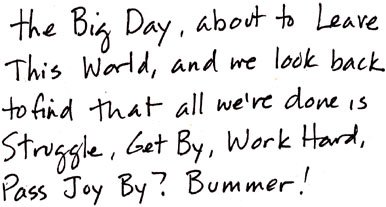 the Big Day, about to Leave
This World, and we look back
to find that all we're done is
Struggle, Get By, Work Hard,
Pass Joy By? Bummer!